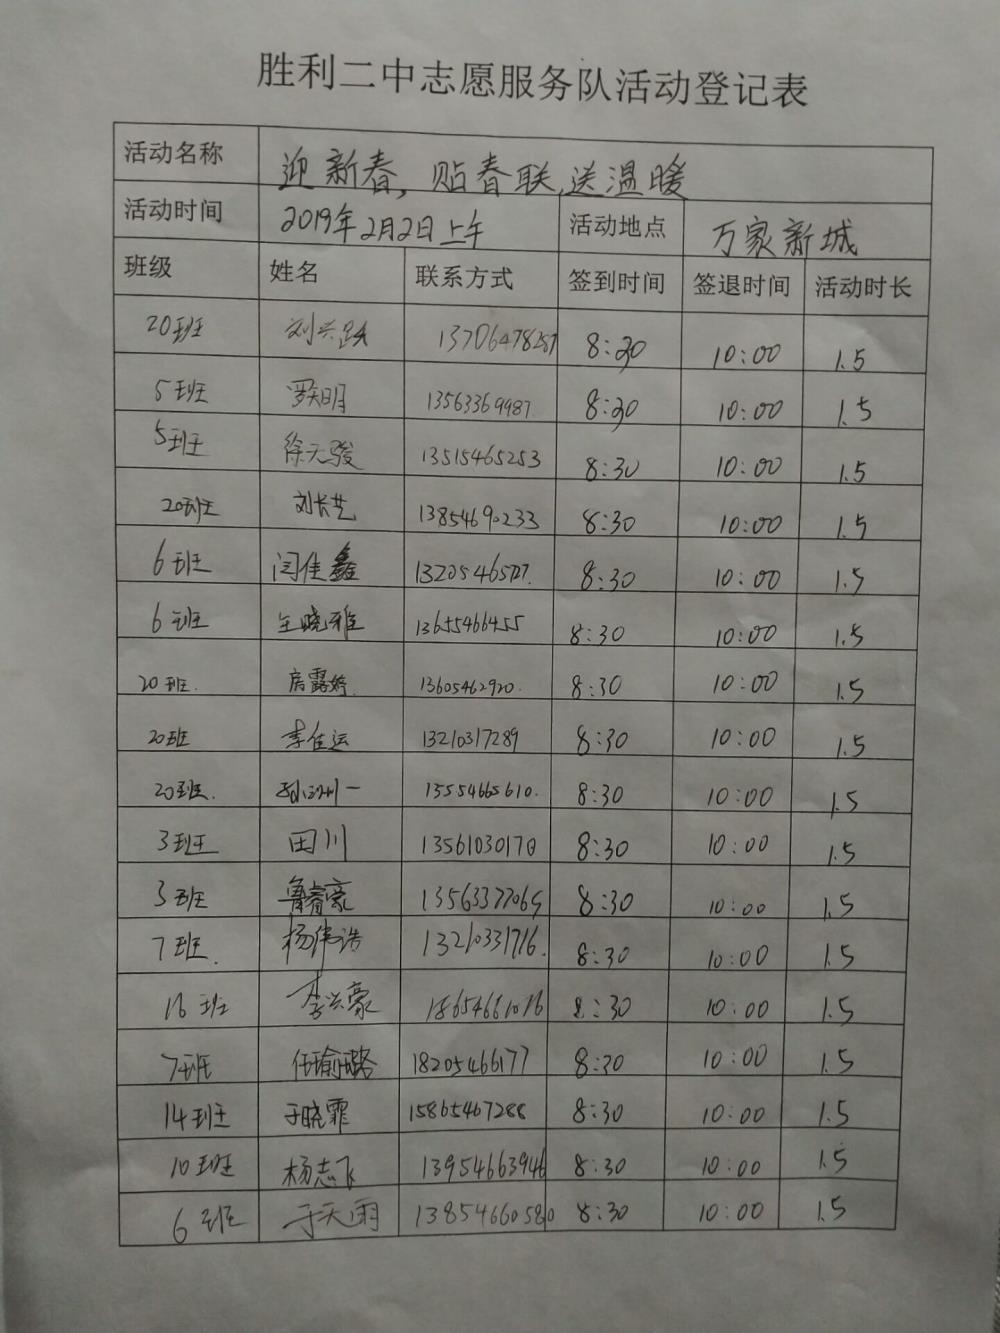 胜利二中志愿服务队活动登记表
活动名称 迎新春,贴春联,送温暖
活动时间 2019年2月2日上午 活动地点 万家新城
班级 姓名 联系方式 签到时间 签退时间 活动时长
20班 刘兴跃 13706478287 8:30 10:00 1.5
5班 13563369987 8:30 10:00 1.5
5班 徐天骏 13515465253 8:30 10:00 1.5
20班 刘长艺 13854690233 8:30 10:00 1.5
6班 闫佳鑫 8:30 10:00 1.5
6班 王晓雅 13655466455 8:30 10:00 1.5
20班. 房露婷. 13605462920. 8:30 10:00 1.5
20班 李佳运 13210317289 8:30 10:00 1.5
20班. 13554665610. 8:30 10:00 1.5
3班 田川 13561030170 8:30 10:00 1.5
3班 鲁睿豪 13563377065 8:30 10:00 1.5
7班. 杨伟浩 13210331716. 8:30 10:00 1.5
16班 李兴豪 18654661016 8:30 10:00 1.5
7班 任瑜璐 18205466177 8:30 10:00 1.5
14班 于晓霏 15865467288 8:30 10:00 1.5
10班 杨志飞 13954663946 8:30 10:00 1.5
6班 于天雨 13854660580 8:30 10:00 1.5